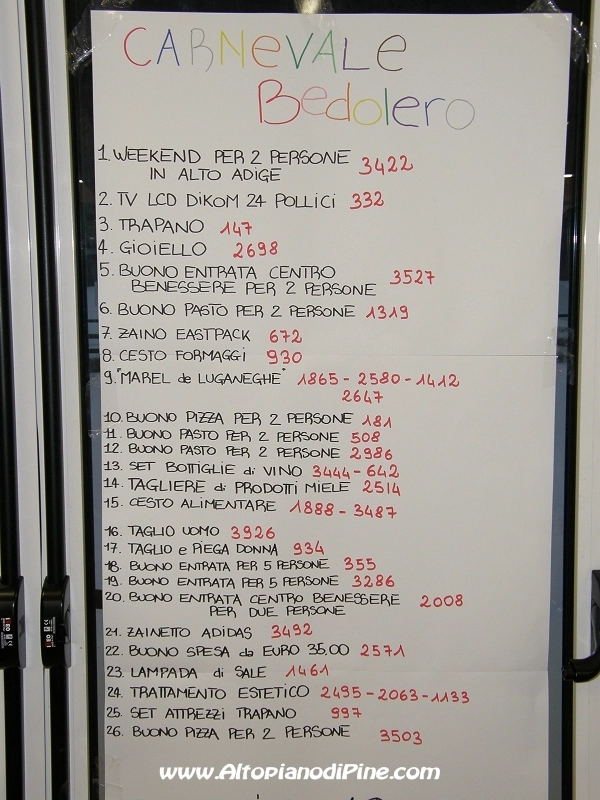 CARNeVALe
Bedolero
1. WEEKEND PER 2 PERSONE 3422
IN ALTO ADIGE
2. TV LCD DiKOM 24 POLLiCi 332
3. TRAPANO 147
4. GiOiELLO 2698
5. BUONO ENTRATA CENTRO 3527
BENESSERE PER 2 PERSONE
6. BUONO PASTO PER 2 PERSONE 1319
7. ZAiNO EASTPACK 672
8. CESTO FORMAGGi 930
9. "MAREL de LUGANEGHE" 1865 - 2580 - 1412
2647
10. BUONO PiZZA PER 2 PERSONE 181
11. BUONO PASTO PER 2 PERSONE 508
12. BUONO PASTO PER 2 PERSONE 2986
13. SET BOTTiGLiE di ViNO 3444 - 642
14. TAGLiERE di PRODOTTi MiELE 2514
15. CESTO ALiMENTARE 1888 - 3487
16. TAGLiO UOMO 3926
17. TAGLiO e PiEGA DONNA 934
18. BUONO ENTRATA PER 5 PERSONE 355
19. BUONO ENTRATA PER 5 PERSONE 3286
20. BUONO ENTRATA CENTRO BENESSERE 2008
PER DUE PERSONE
21. ZAiNETTO ADiDAS 3492
22. BUONO SPESA da EURO 35,00 2571
23. LAMPADA di SALE 1461
24. TRATTAMENTO ESTETiCO 2495 - 2063 - 1133
25. SET ATTREZZi TRAPANO 997
26. BUONO PiZZA PER 2 PERSONE 3503
www.AltopianodiPine.com